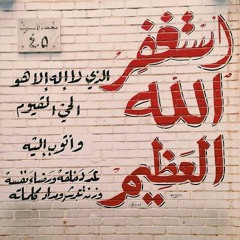 استغفر
الله
العظيم
الذي لا إله الا هو
الحي القيوم
وأتوب إليه
عدد خلقه ورضاء نفسه
وزنة عرشه ومداد كلماته